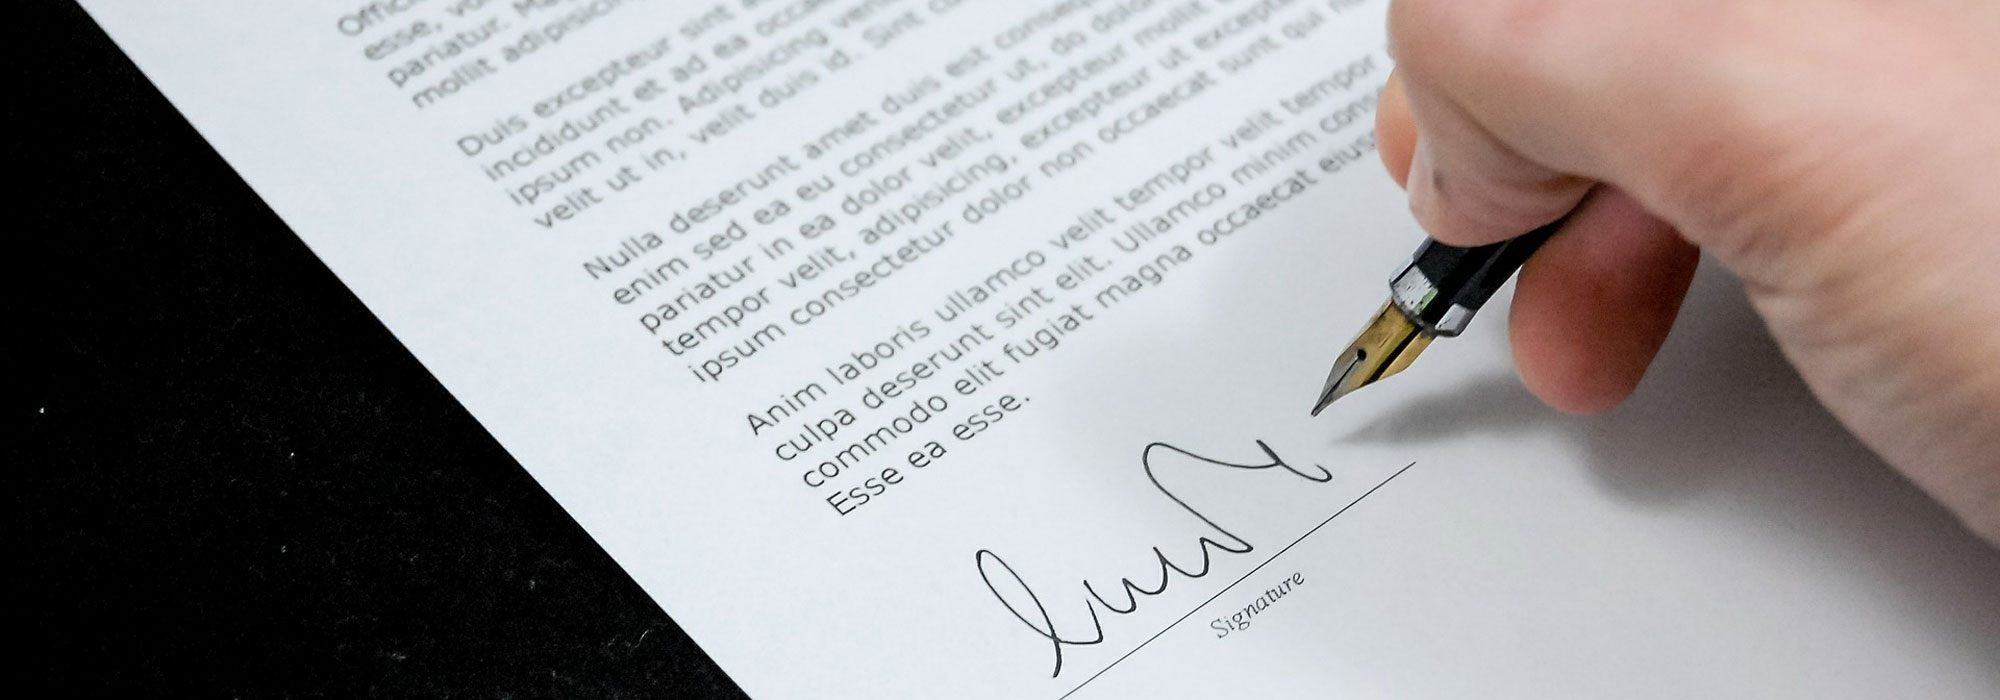 esse,
pariatur.
mollit adipisicing
Duis excepteur sint
incididunt et ad ea
ipsum non. Adipisicing
velit ut in, velit duis id. Sint
Nulla deserunt amet duis est
enim sed ea eu consectetur ut, do dolor
pariatur in ea dolor velit, excepteur mollit
tempor velit, adipisicing, excepteur ut
ipsum consectetur dolor non occaecat sunt qui
Anim laboris ullamco velit tempor velit tempor
culpa deserunt sint elit. Ullamco minim
commodo elit fugiat magna occaecat
Esse ea esse.
Signature